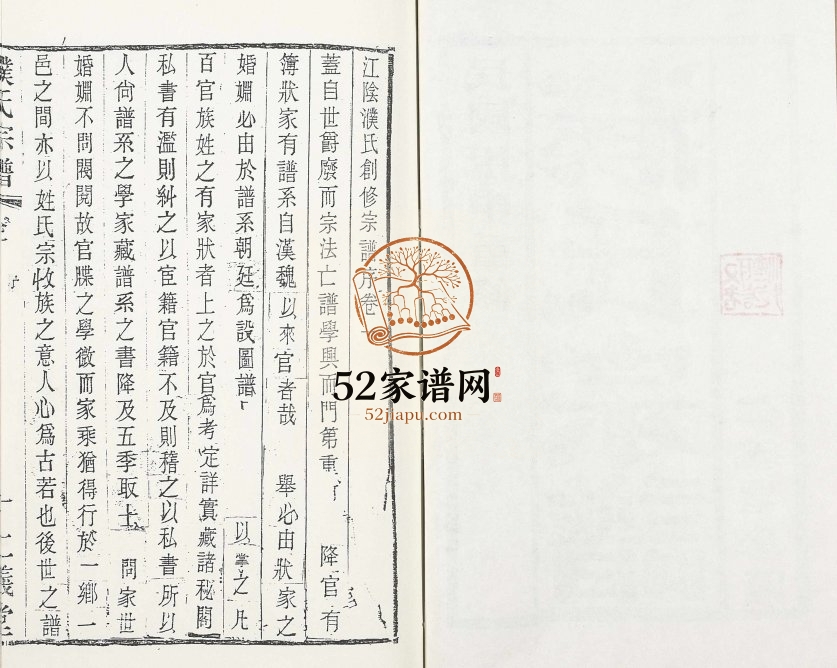 江陰濮氏創修宗譜序卷
蓋自世爵廢而宗法亡譜學興而門第重 降官有
簿狀家有譜系自漢魏以來官者哉 舉必由狀家之
婚姻必由於譜系朝廷爲設圖譜 以掌之凡
百官族姓之有家狀者上之於官爲考定詳實藏諸秘閣
私書有濫則糾之以宦籍官籍不及則稽之以私書所以
人尙譜系之學家藏譜系之書降及五季取士 問家世
婚姻不問閥閱故官牒之學微而家乘猶得行於一鄉一
邑之間亦以姓氏宗收族之意人心爲古若也後世之譜
濮氏宗譜
52家谱网
52jiapu.com